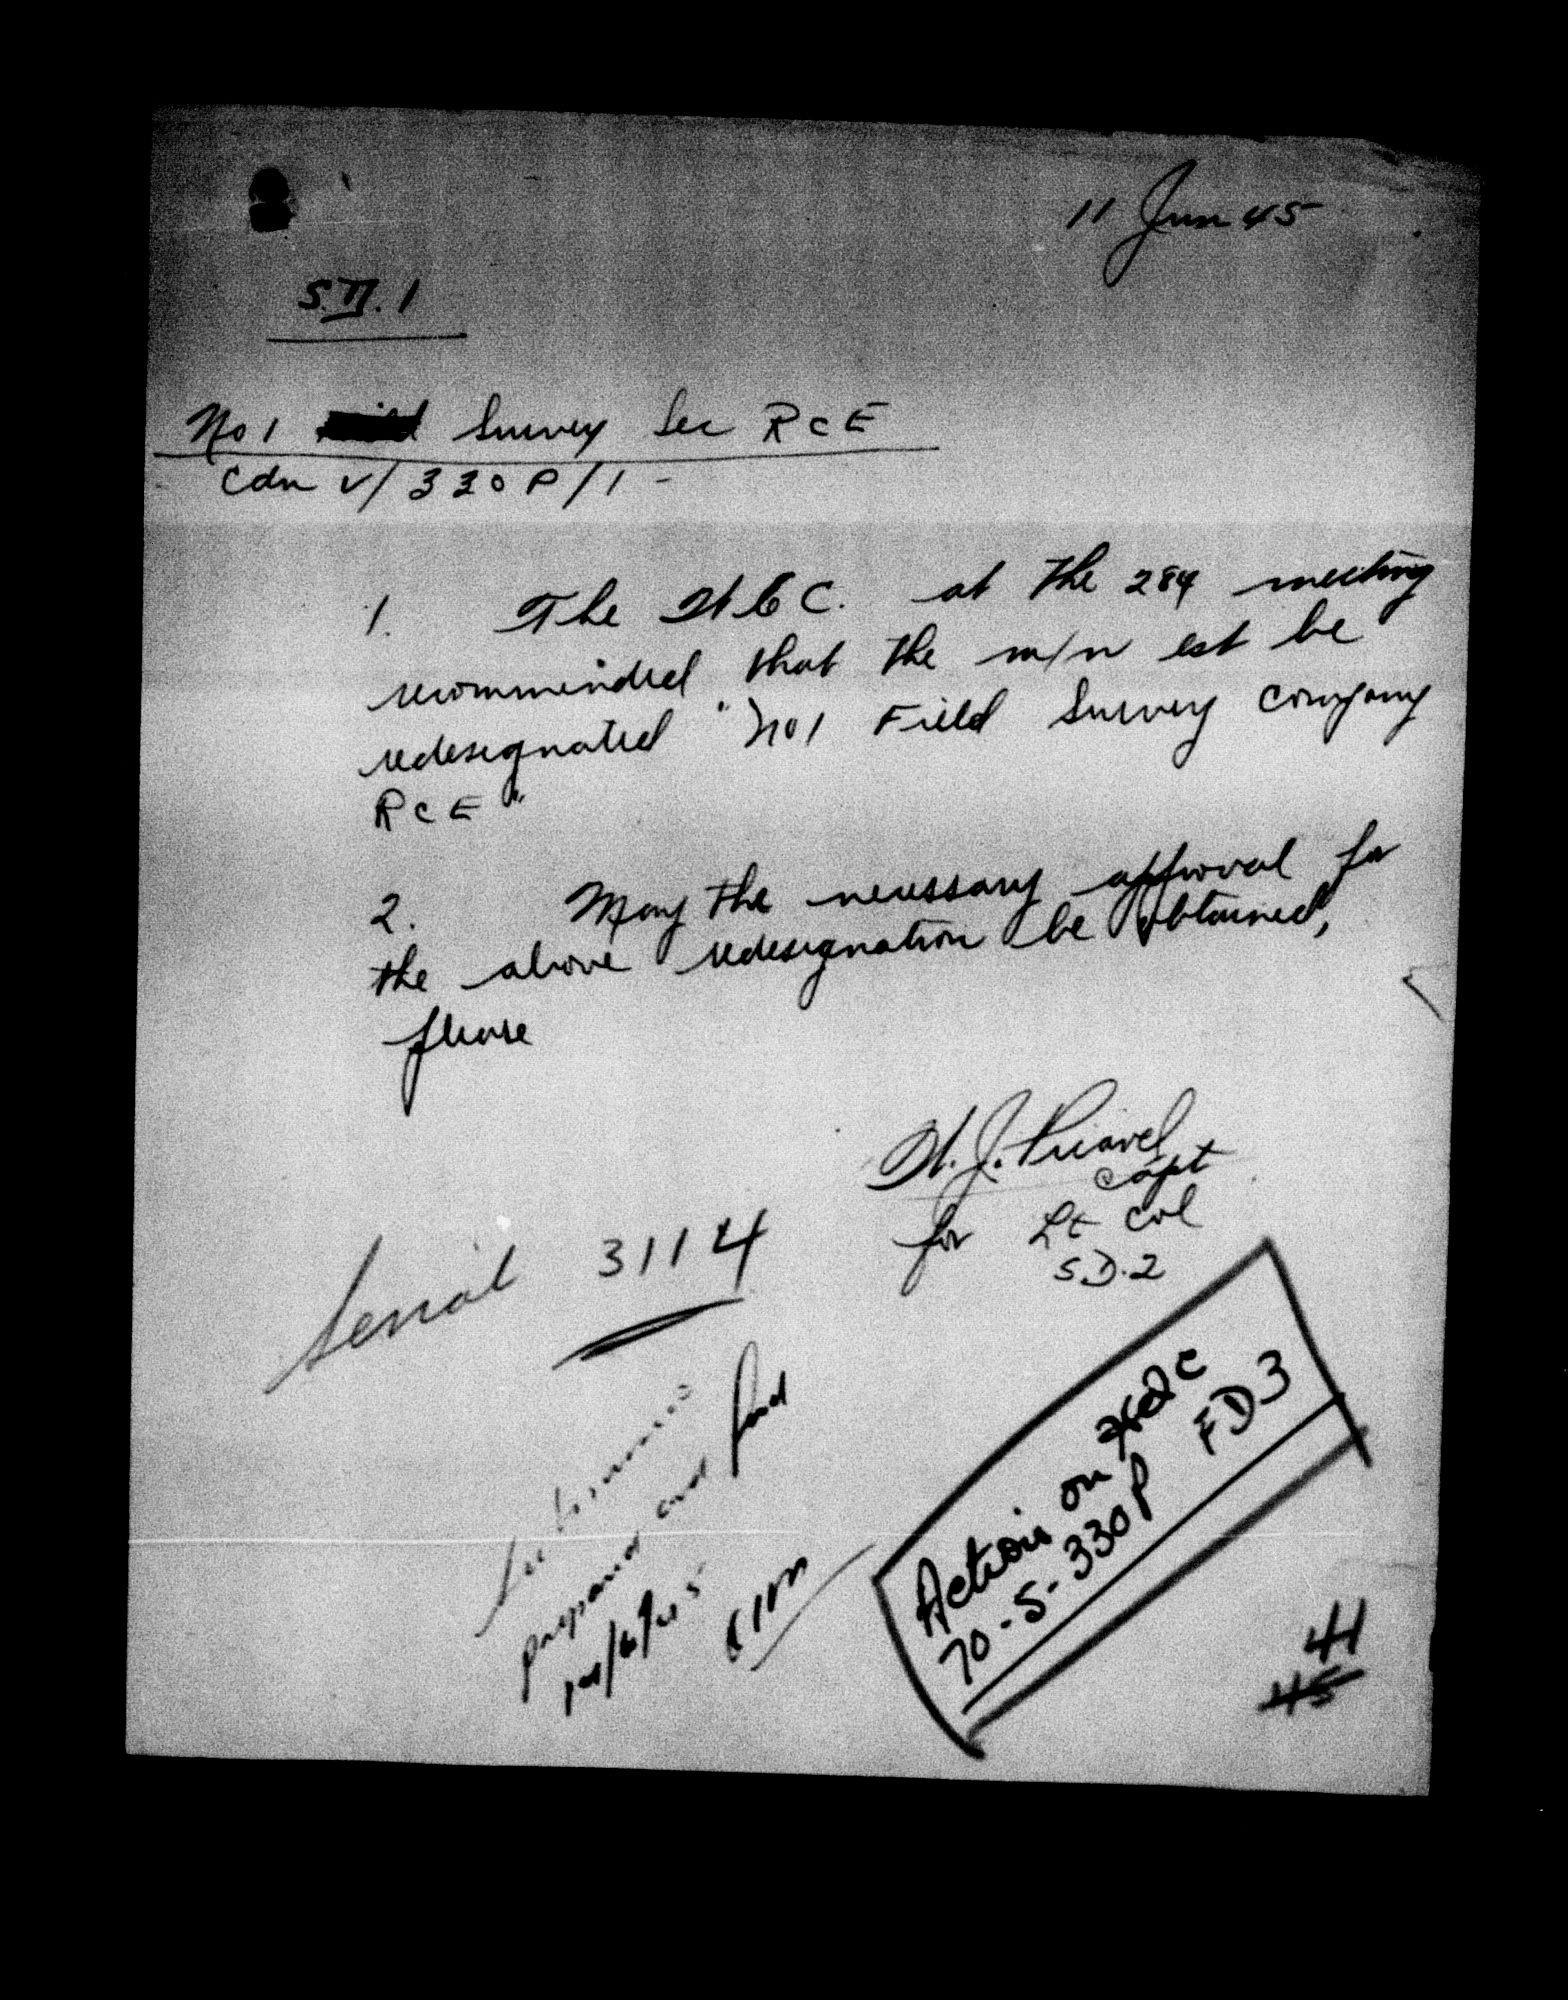 11 Jun 45
S.D. 1
No 1 Survey Sec RCE
Cdn V/330P/1
1. The W.E.C. at the 284 meeting
recommended that the m/n est be
redesignated "No1 Field Survey Company
RCE"
2. May the necessary approval for
the above redesignation be obtained,
please
Capt
for Lt Col
S.D.2
Serial 3114
prepared and fwd
Action on
70-5-330P FD3
44
45